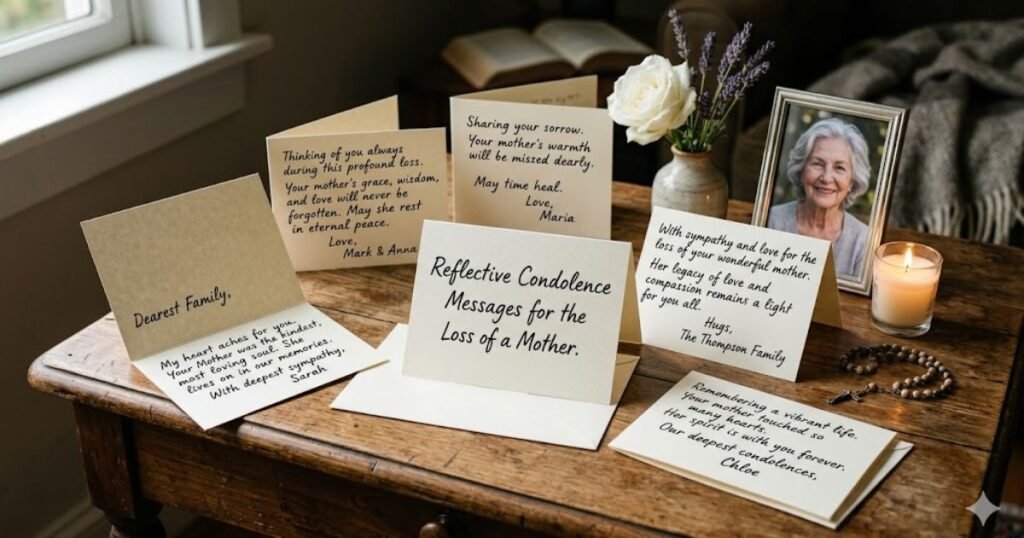 Thinking of you always
during this profound loss.
Your mother's grace, wisdom,
and love will never be
forgotten. May she rest
in eternal peace.
Love,
Mark & Anna
Sharing your sorrow.
Your mother's warmth
will be missed dearly.
May time heal.
Love,
Maria
Dearest Family,
My heart aches for you.
Your Mother was the kindest,
most loving soul. She
lives on in our memories.
With deepest sympathy,
Sarah
Reflective Condolence
Messages for the
Loss of a Mother.
With sympathy and love for the
loss of your wonderful mother.
Her legacy of love and
compassion remains a light
for you all.
Hugs,
The Thompson Family
Remembering a vibrant life.
Your mother touched so
many hearts.
Her spirit is with you forever.
Our deepest condolences,
Chloe